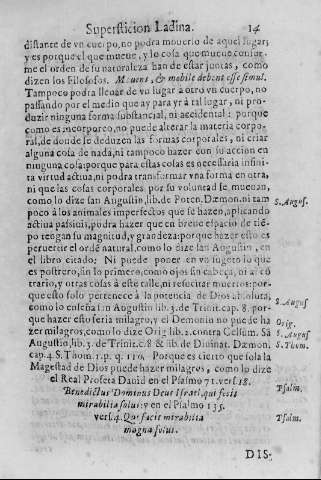 Supersticion Ladina. 14
distante de vn cuerpo, no podra mouerlo de aquel lugar,
y es porque el que mueue, y lo que mueue confor-
me el orden de su naturaleza han de estar juntas, como
dizen los Filosofos. Mouens, & mobile debent esse simul.
Tampoco podra lleuar de vn lugar à otro vn cuerpo, no
passando por el medio que ay para yr à tal lugar, ni pro-
duzir ninguna forma substancial, ni accidental: porque
como es incorporeo, no puede alterar la materia corpo-
ral, de donde se deduzen las formas corporales, ni criar
alguna cosa de nada, ni tampoco hazer con su accion en
ninguna cosa: porque para estas cosas es necessaria infini-
ta virtud actiua, ni podra transformar vna forma en otra,
ni que las cosas corporales por su voluntad se mueuan,
como lo dize san Augustin, lib. de Poten. Dæmon. ni tam
poco à los animales imperfectos que se hazen, aplicando
actiua passiuis, podra hazer que en breue espacio de tiē-
po tengan su magnitud, y grandeza: porque hazer esto es
peruertir el ordē natural, como lo dize san Augustin, en
el libro citado: Ni puede poner en vn sugeto lo que
es postrero, sin lo primero, como ojos sin cabeça, ni al cō
trario, y otras cosas à este talle, ni resucitar muertos: por-
que esto solo pertenece à la potencia de Dios absoluta,
como lo enseña san Augustin lib. 3. de Trinit. cap. 8. por-
que hazer esto seria milagro, y el Demonio no puede ha
zer milagros, como lo dize Orig. lib. 2. contra Celsum. Sā
Augustin, lib. 3. de Trinit. c. 8 & lib. de Diuinat. Dæmon.
cap. 4. S. Thom. 1. p. q. 110. Porque es cierto que sola la
Magestad de Dios puede hazer milagros, como lo dize
el Real Profeta Dauid en el Psalmo 71. vers. 18.
Benedictus Dominus Deus Israel, qui facit
mirabilia solus: y en el Psalmo 135.
vers. 4. Qui facit mirabilia
magna solus.
S. Augus.
S. Augus
Orig.
S. Augus
S. Thom.
Psalm.
Psalm.
DIS-